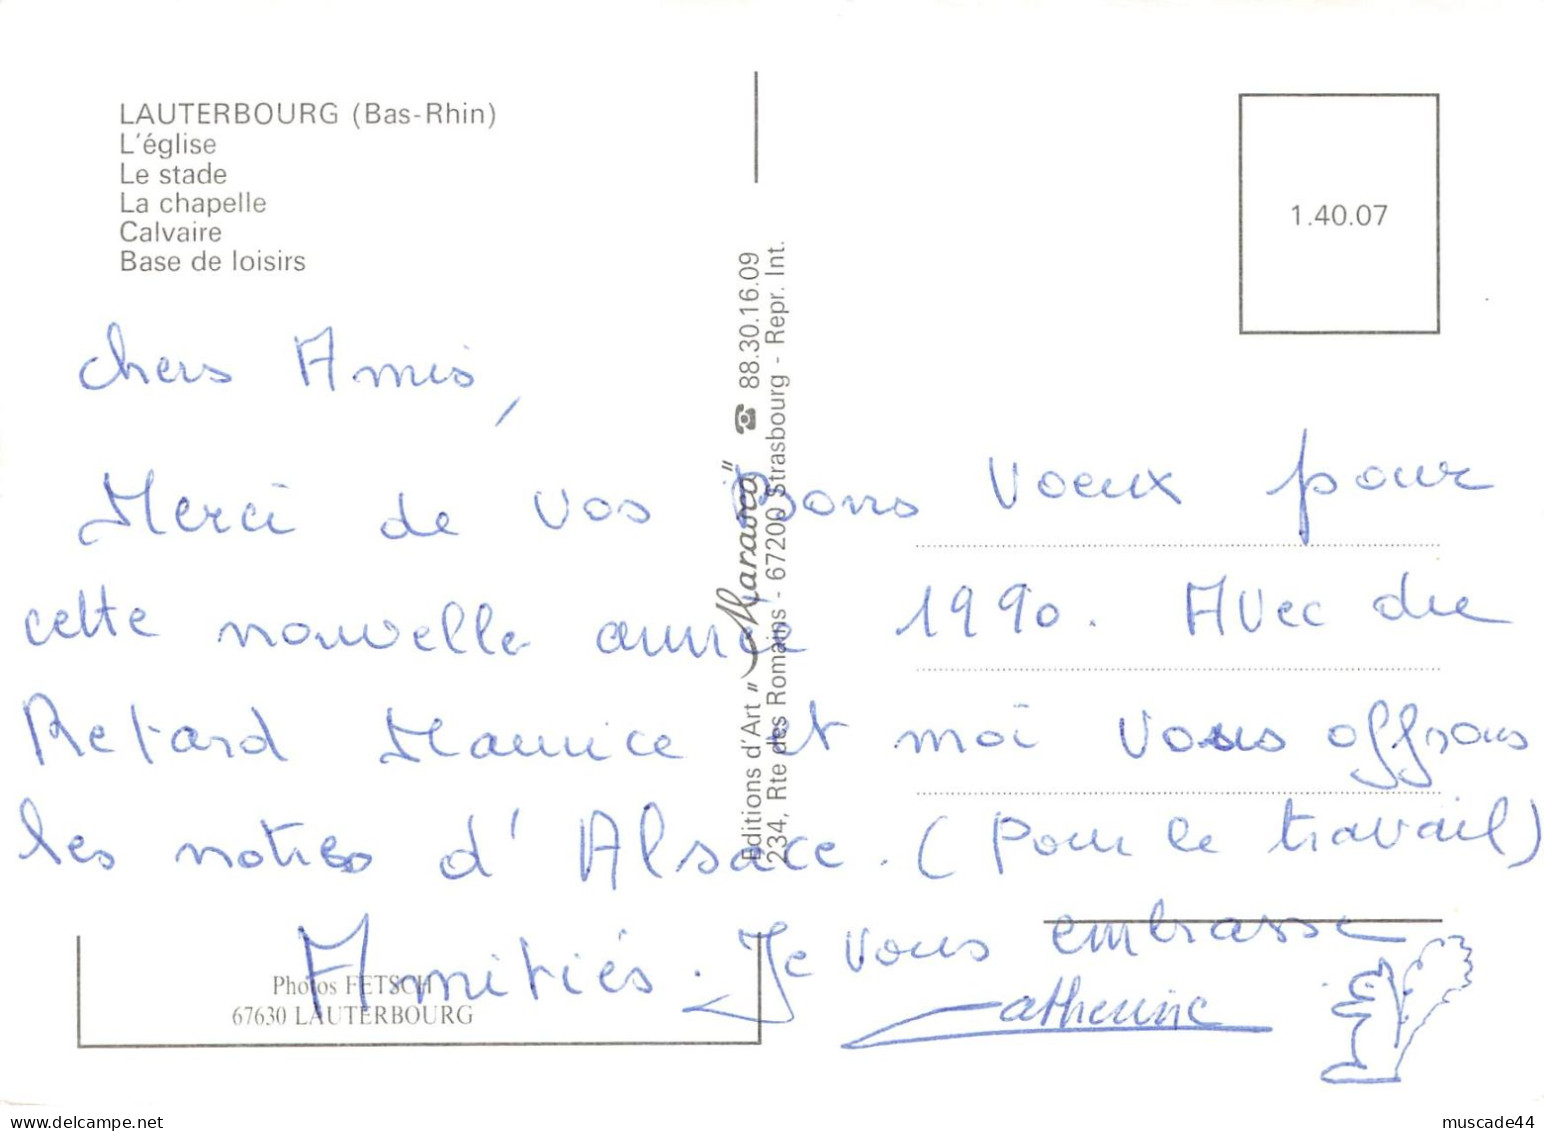 LAUTERBOURG (Bas-Rhin)
L'église
Le stade
La chapelle
Calvaire
Base de loisirs
1.40.07
Editions d'Art "Marasco" ☎ 88.30.16.09
234, Rte des Romains - 67200 Strasbourg - Repr. Int.
Chers Amis,
Merci de vos Bons Voeux pour
cette nouvelle année 1990. Avec du
Retard Maurice et moi Vous offrons
les notres d'Alsace. (Pour le travail)
Amitiés. Je vous embrasse
Catherine
Photos FETSCH
67630 LAUTERBOURG
muscade44